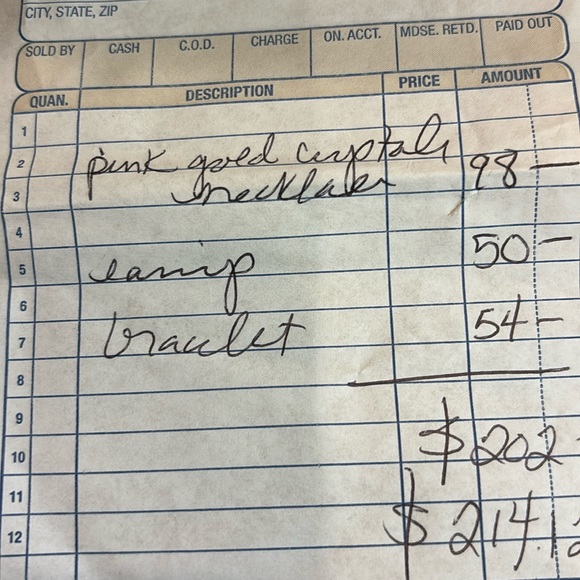 CITY, STATE, ZIP
SOLD BY CASH C.O.D. CHARGE ON. ACCT. MDSE. RETD. PAID OUT
QUAN. DESCRIPTION PRICE AMOUNT
1
2 pink gold crystals 98 —
3 necklace
4
5 earrip 50 —
6
7 bracelet 54 —
8
9
10 $ 202
11
12 $ 214.12